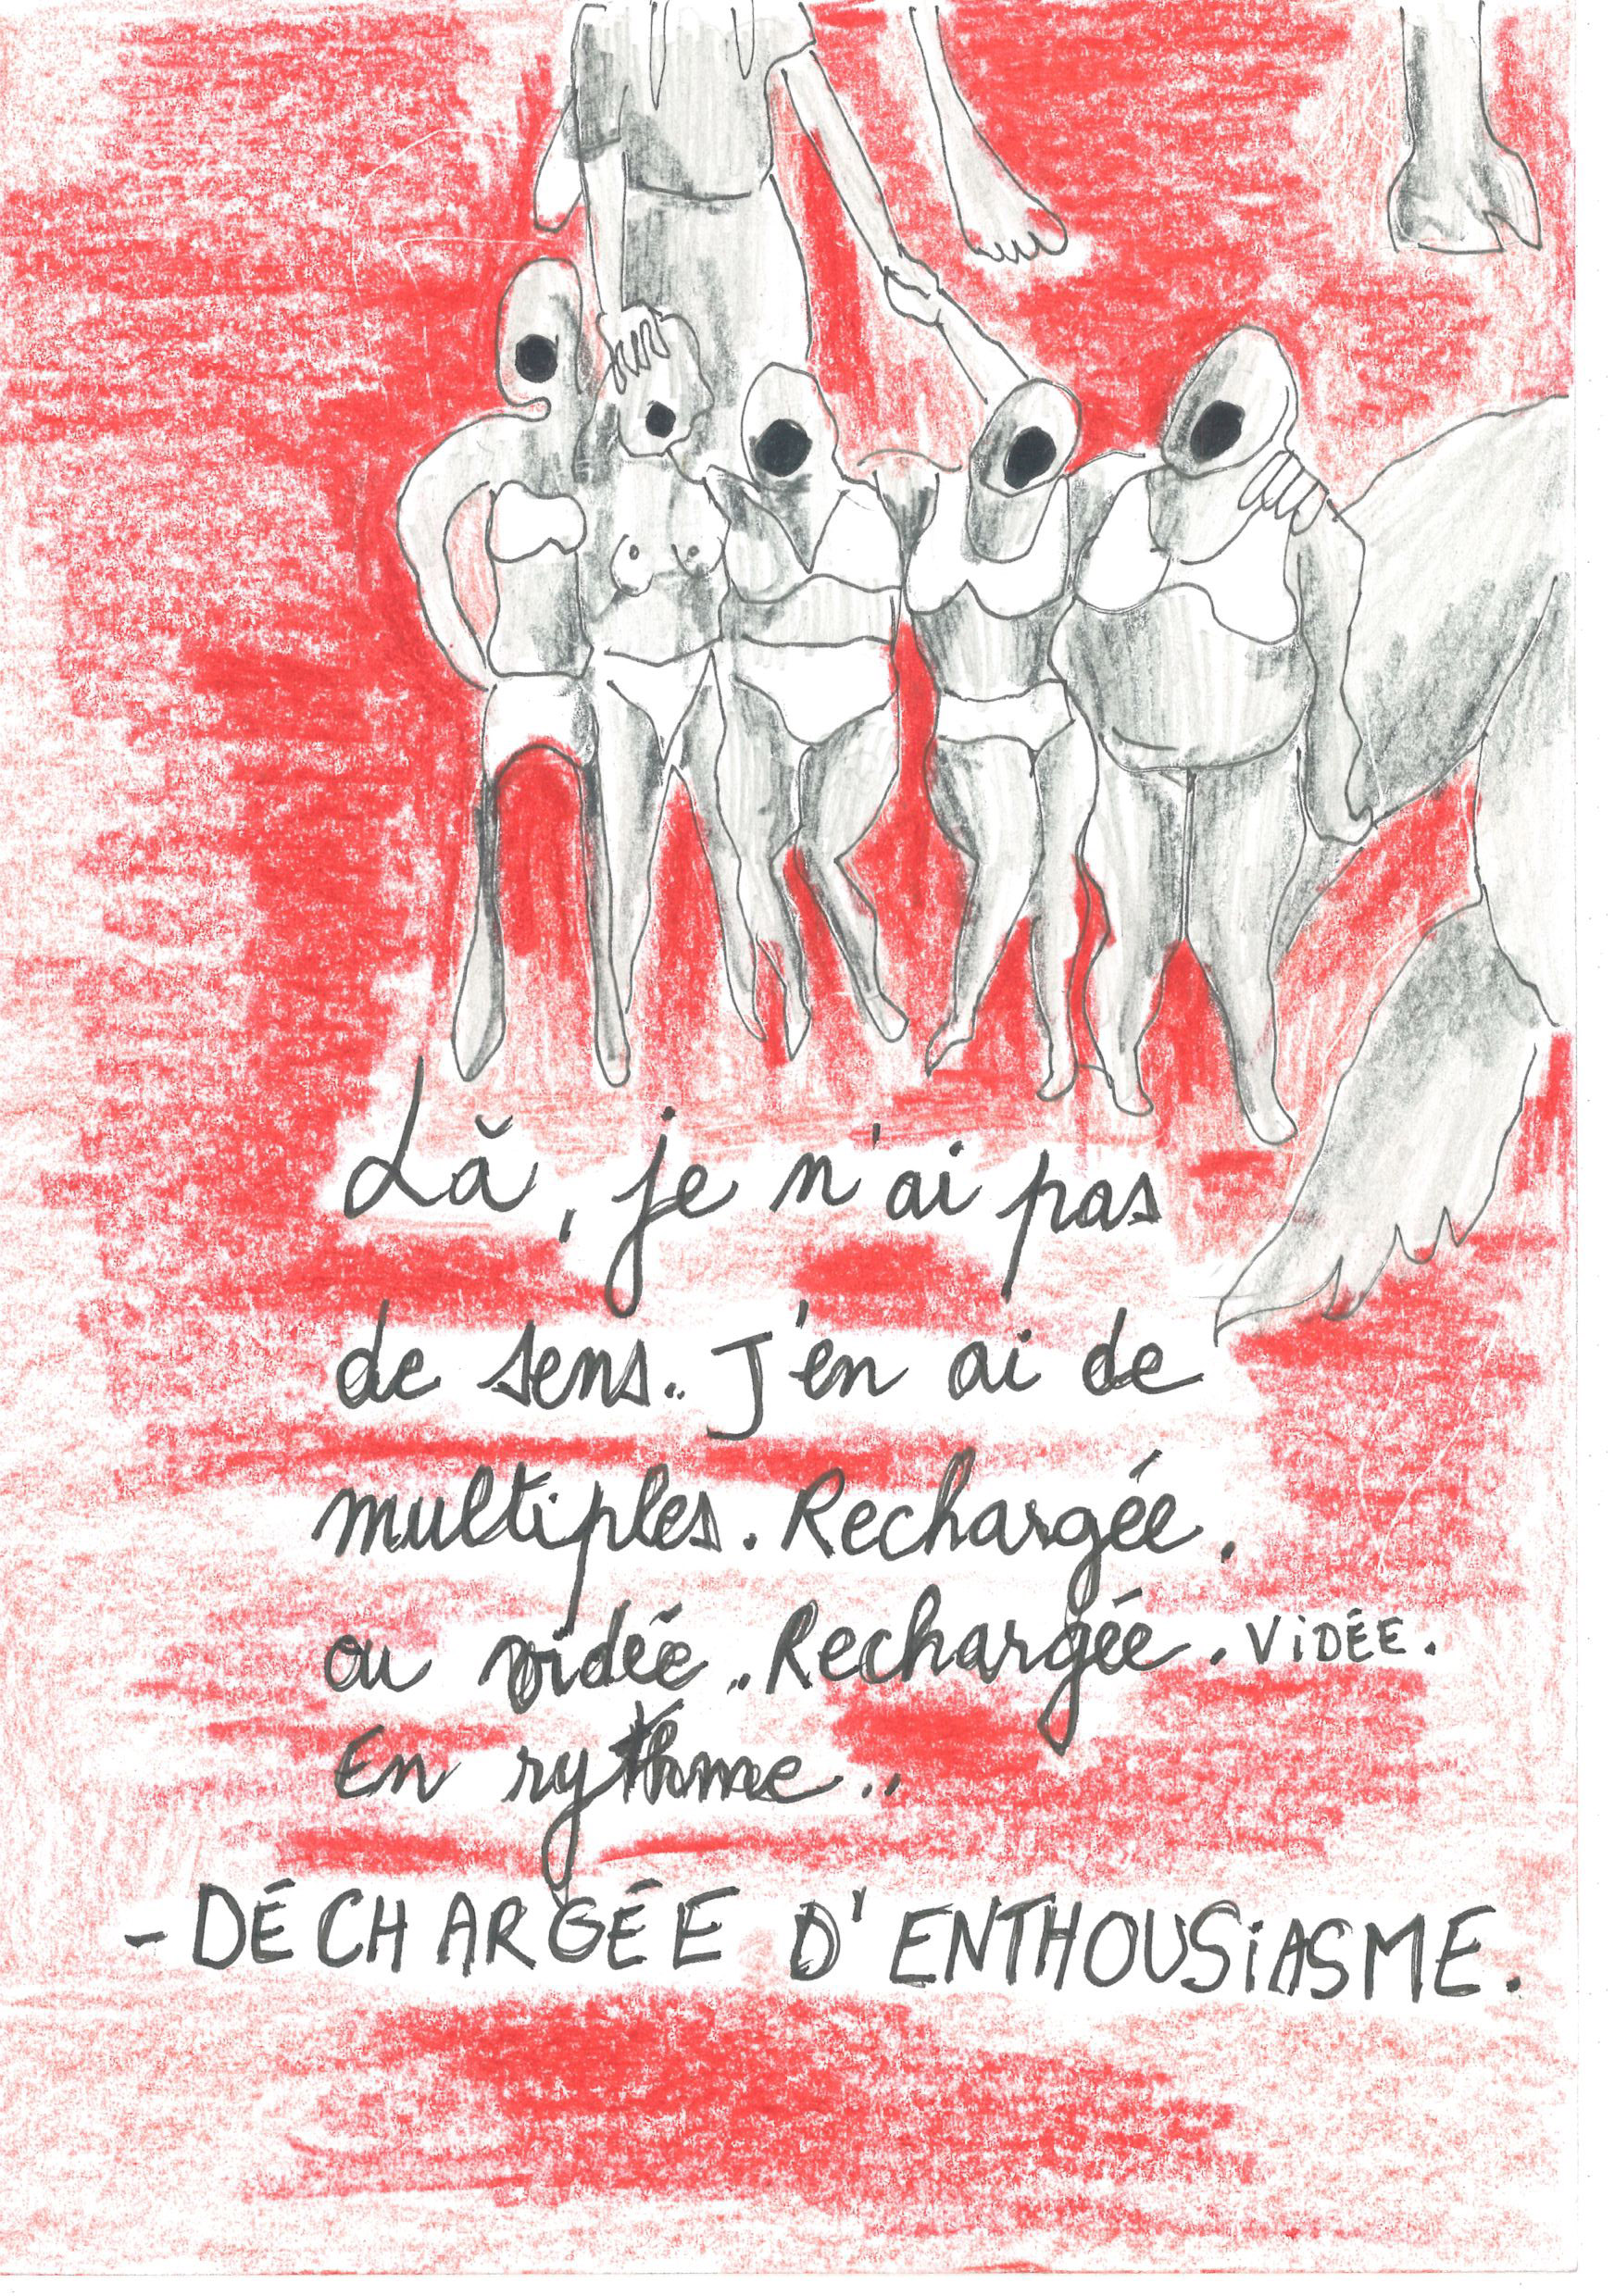 Là, je n'ai pas
de sens.. J'en ai de
multiples. Rechargée.
ou vidée.. Rechargée. ViDÉE.
En rythme..
- DÉCHARGÉE D'ENTHOUSiASME.